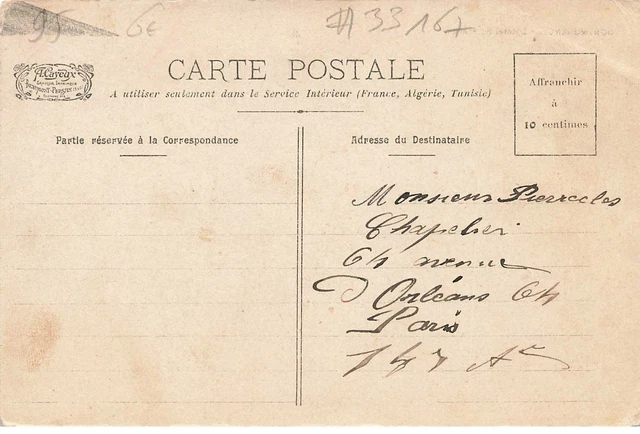 95 6€
# 33167
A. Cayeux
CARTE POSTALE
A utiliser seulement dans le Service Intérieur (France, Algérie, Tunisie)
Affranchir
à
10 centimes
Partie réservée à la Correspondance
Adresse du Destinataire
Monsieur
Chapelier
64 avenue
D Orléans 64
Paris
14